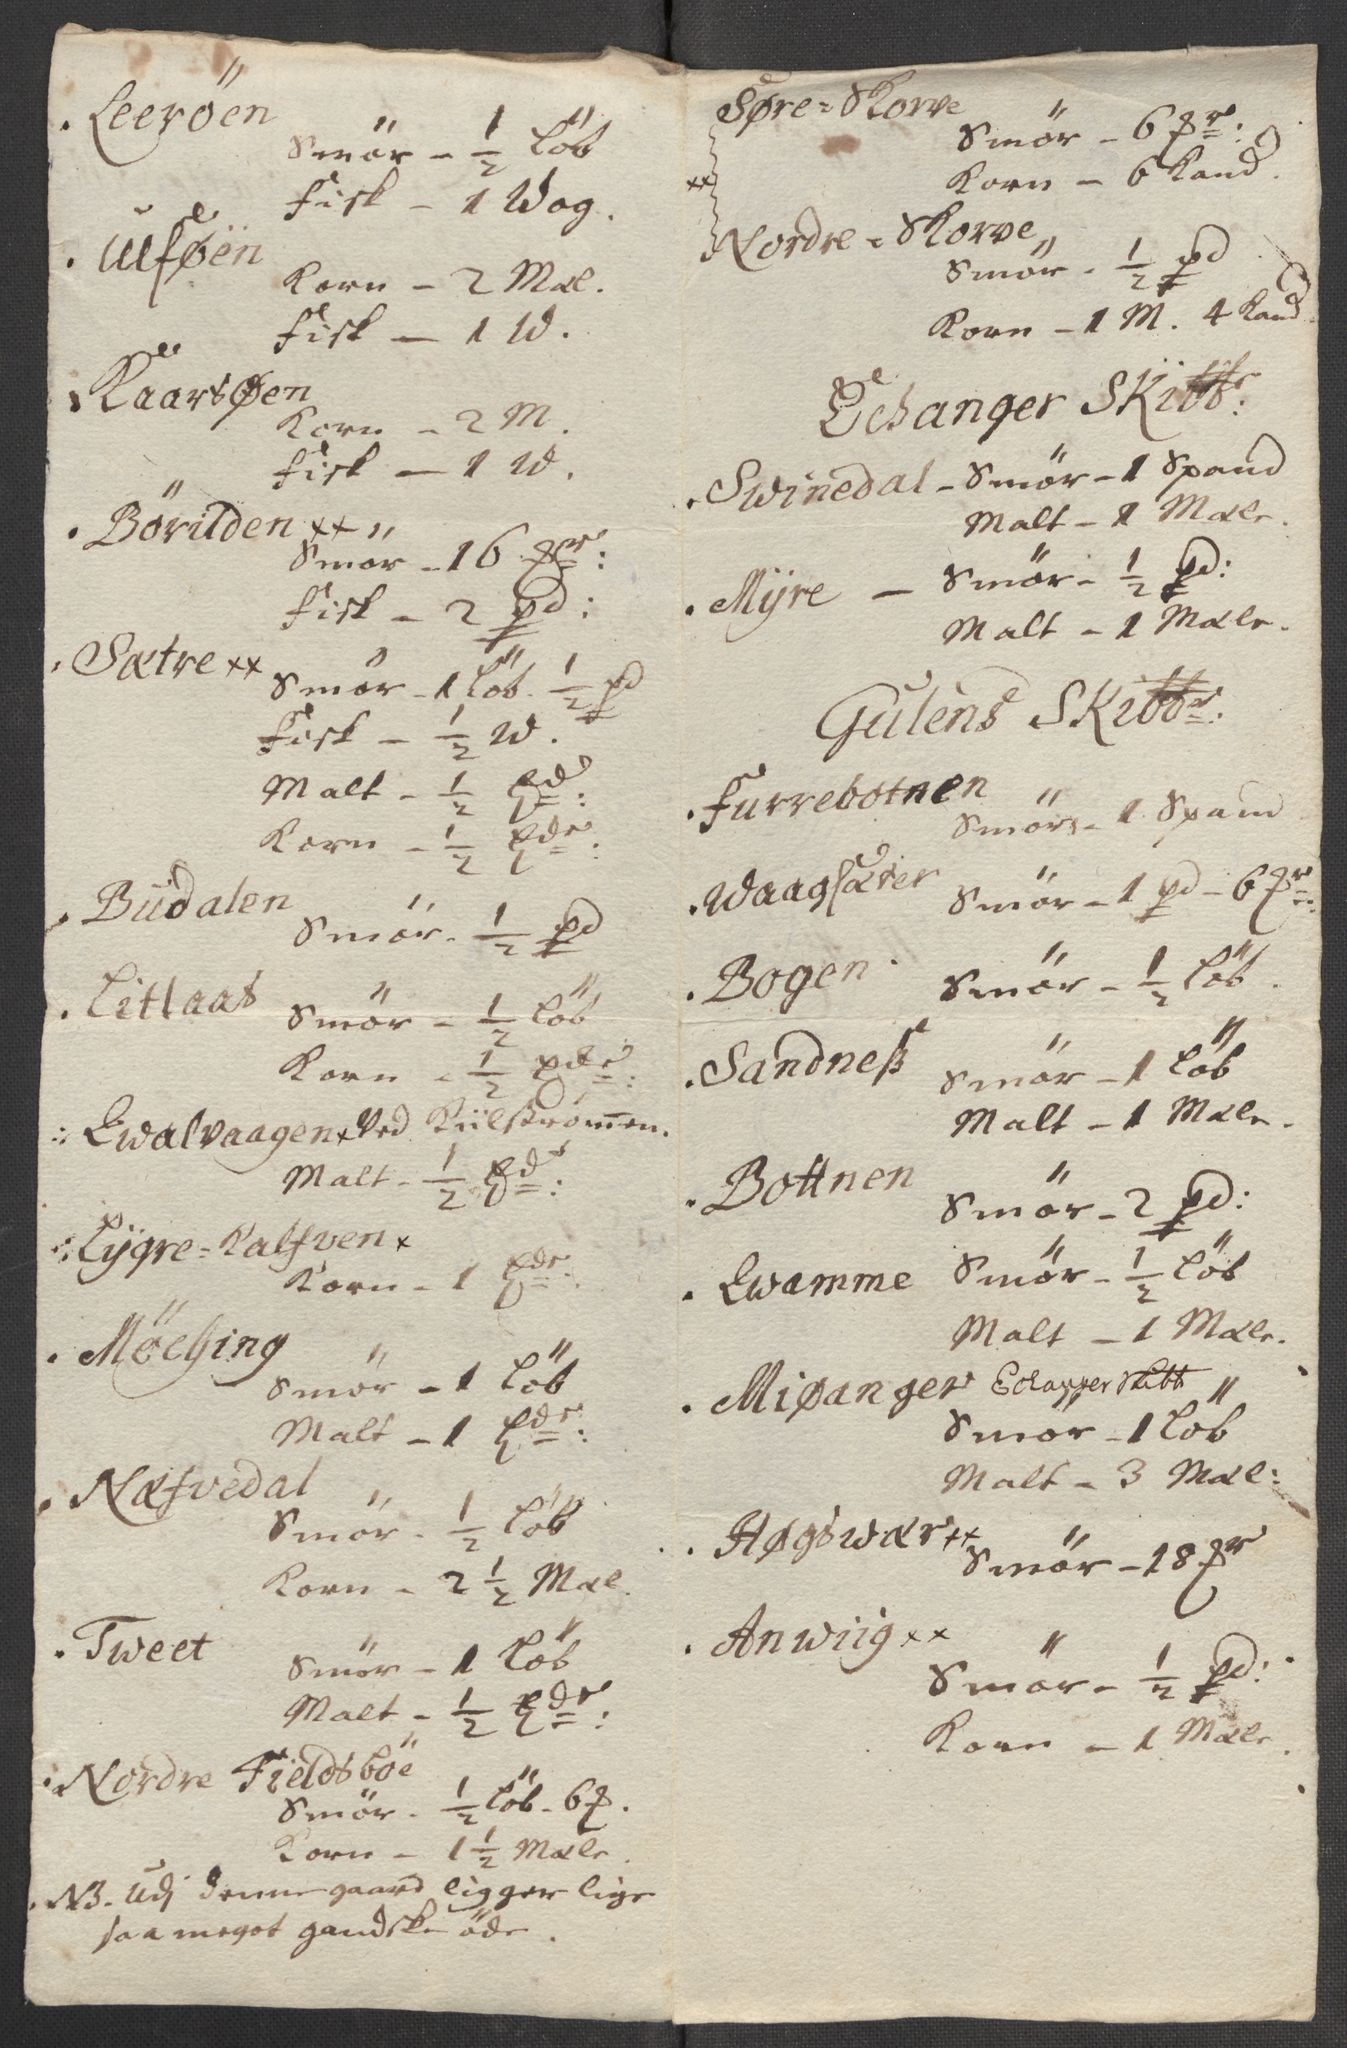 Leeröen
Smör - 1/2 Löb
Fisk - 1 Wog.
Ulføen
Korn - 2 Mæl.
Fisk - 1 W.
Kaartøen
Korn - 2 M.
Fisk - 1 W.
Börilden ××
Smör - 16
Fisk - 2 pd:
Sætre ××
Smör - 1 Löb. 1/2 pd
Fisk - 1/2 W.
Malt - 1/2
Korn - 1/2
Büdalen
Smör - 1/2 pd
Litlaas
Smör - 1/2 Löb
Korn - 1/2
Ewalvaagen × Ved Kiilströmen.
Malt - 1/2
Lygre = Kalfven ×
Korn - 1
Möching
Smör - 1 Löb
Malt - 1
Næfvedal
Smör - 1/2 Löb
Korn - 2 1/2 Mæl.
Tweet
Smör - 1 Löb
Malt - 1/2
Nordre Fieldsböe
Smör - 1/2 Löb - 6
Korn - 1 1/2 Mæle.
NB. Udj denne gaard ligger lige
saa meget gandske öde.
Søre = Skorve
Smör - 6
×× Korn - 6 Kand.
Nordre = Skorve
Smör - 1/2 pd
Korn - 1 M. 4 Kand
Echanger Skibbr:
Swinedal - Smör - 1 Spand
Malt - 1 Mæle.
Mÿre - Smör - 1/2 pd:
Malt - 1 Mæle.
Gulens Skibbr:
Furrebotnen
Smör - 1 Spand
Waagsæter
Smör - 1 pd - 6
Bogen
Smör - 1/2 Löb.
Sandneß
Smör - 1 Löb
Malt - 1 Mæle.
Bottnen
Smör - 2 pd:
Ewamme Smör - 1/2 Löb
Malt - 1 Mæle.
Miøanger Echanger Skibb
Smör - 1 Löb
Malt - 3 Mæl:
Høgswær ××
Smör - 18
Anwiig ××
Smör - 1/2 pd:
Korn - 1 Mæle.